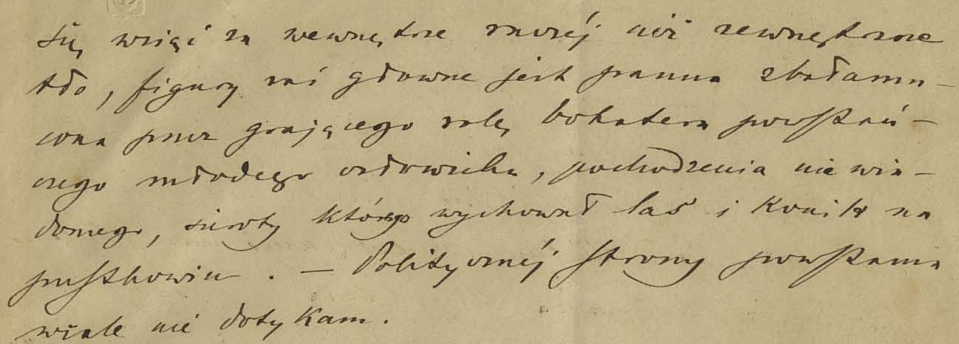 się wziąć za wewnętrzne raczéj niż zewnętrzne
tło, figurą zaś główne jest panna zbałamu-
cona przez grającego rolę bohatera powstań-
czego młodego człowieka, pochodzenia nie wia-
domego, sieroty którego wychował las i na
pustkowiu. — Politycznéj strony powstania
wcale nie dotykam.